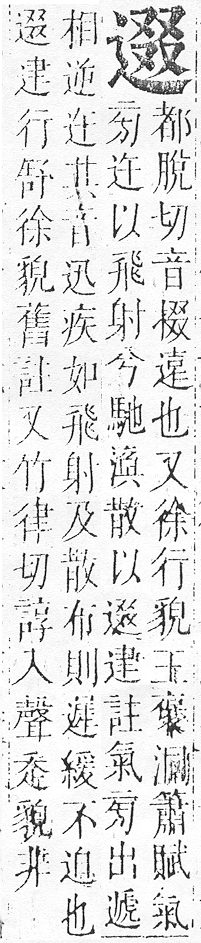 都脫切音掇遠也又徐行貌王褒洞簫賦氣
旁迕以飛射兮馳渙散以䢖註氣旁出遞
相逆迕其音迅疾如飛射及散布則遲緩不迫也
䢖行舒徐貌舊註又竹律切諄入聲貌非